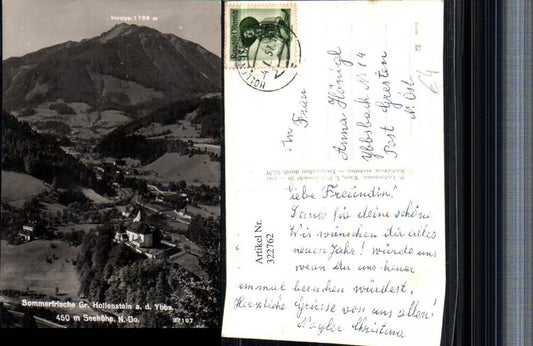 Voralpe. 1789 m
Sommerfrische Gr. Hollenstein a. d. Ybbs
450 m Seehöhe, N.Do.
HOLLEN
In Frau
Anna Hönigl
Ybbsbach Nr 14
Post Gresten
N. Öst.
Artikel Nr.
322762
Liebe Freundin!
Dank für deine schöne
Wir wünschen dir alles
neuen Jahr! würde uns
wenn du uns heuer
einmal besuchen würdest.
Herzliche Grüsse von uns allen!
Nagler Christina